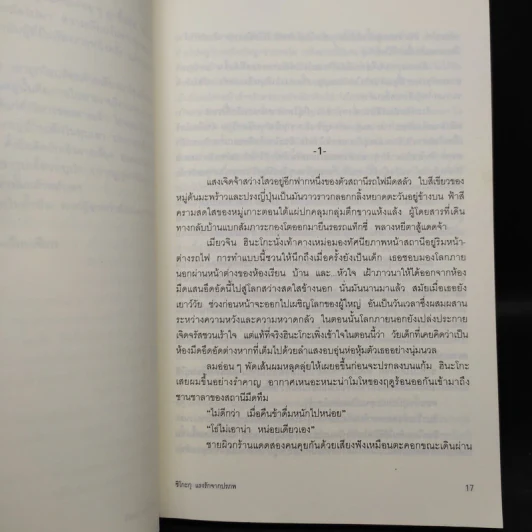 -1-
แสงเจิดจ้าสว่างไสวอยู่อีกฟากหนึ่งของตัวสถานีรถไฟมืดสลัว ใบสีเขียวของ
หมู่ต้นมะพร้าวและปรงญี่ปุ่นเป็นมันวาวราวกลอกกลิ้งหยาดตะวันอยู่ข้างบน ฟ้าสี
ครามสดใสของหมู่เกาะตอนใต้แผ่ปกคลุมกลุ่มตึกขาวแห้งแล้ง ผู้โดยสารที่เดิน
ทางกลับบ้านแบกสัมภาระกองโตออกมายืนรอรถแท็กซี่ พลางหยีตาสู้แดดจ้า
เมียวจิน ฮินะโกะนั่งเท้าคางเหม่อมองทัศนียภาพหน้าสถานีอยู่ริมหน้า-
ต่างรถไฟ การทำแบบนี้ชวนให้นึกถึงเมื่อครั้งยังเป็นเด็ก เธอชอบมองโลกภาย
นอกผ่านหน้าต่างของห้องเรียน บ้าน และ...หัวใจ เฝ้าภาวนาให้ได้ออกจากห้อง
มืดแสนอึดอัดนี้ไปสู่โลกสว่างสดใสข้างนอก นั่นมันนานมาแล้ว สมัยเมื่อเธอยัง
เยาว์วัย ช่วงก่อนหน้าจะออกไปเผชิญโลกของผู้ใหญ่ อันเป็นวันเวลาซึ่งผสมผสาน
ระหว่างความหวังและความหวาดกลัว ในตอนนั้นโลกภายนอกยังเปล่งประกาย
เจิดจรัสชวนเร้าใจ แต่แท้ที่จริงฮินะโกะเพิ่งเข้าใจในตอนนี้ว่า วัยเด็กที่เคยคิดว่าเป็น
ห้องมืดอึดอัดต่างหากที่เต็มไปด้วยลำแสงอบอุ่นห่อหุ้มตัวเธออย่างนุ่มนวล
ลมอ่อนๆ พัดเส้นผมหลุดลุ่ยให้เผยอขึ้นก่อนจะปรกลงบนแก้ม ฮินะโกะ
เสยผมขึ้นอย่างรำคาญ อากาศเหนอะหนะน่าโมโหของฤดูร้อนออกันเข้ามาถึง
ชานชาลาของสถานีมืดทึม
“ไม่ดีกว่า เมื่อคืนข้าดื่มหนักไปหน่อย”
“โธ่ไม่เอาน่า หน่อยเดียวเอง”
ชายผิวกร้านแดดสองคนคุยกันด้วยเสียงฟังเหมือนตะคอกขณะเดินผ่าน
ชิโกะกุ : แรงรักจากปรภพ 17